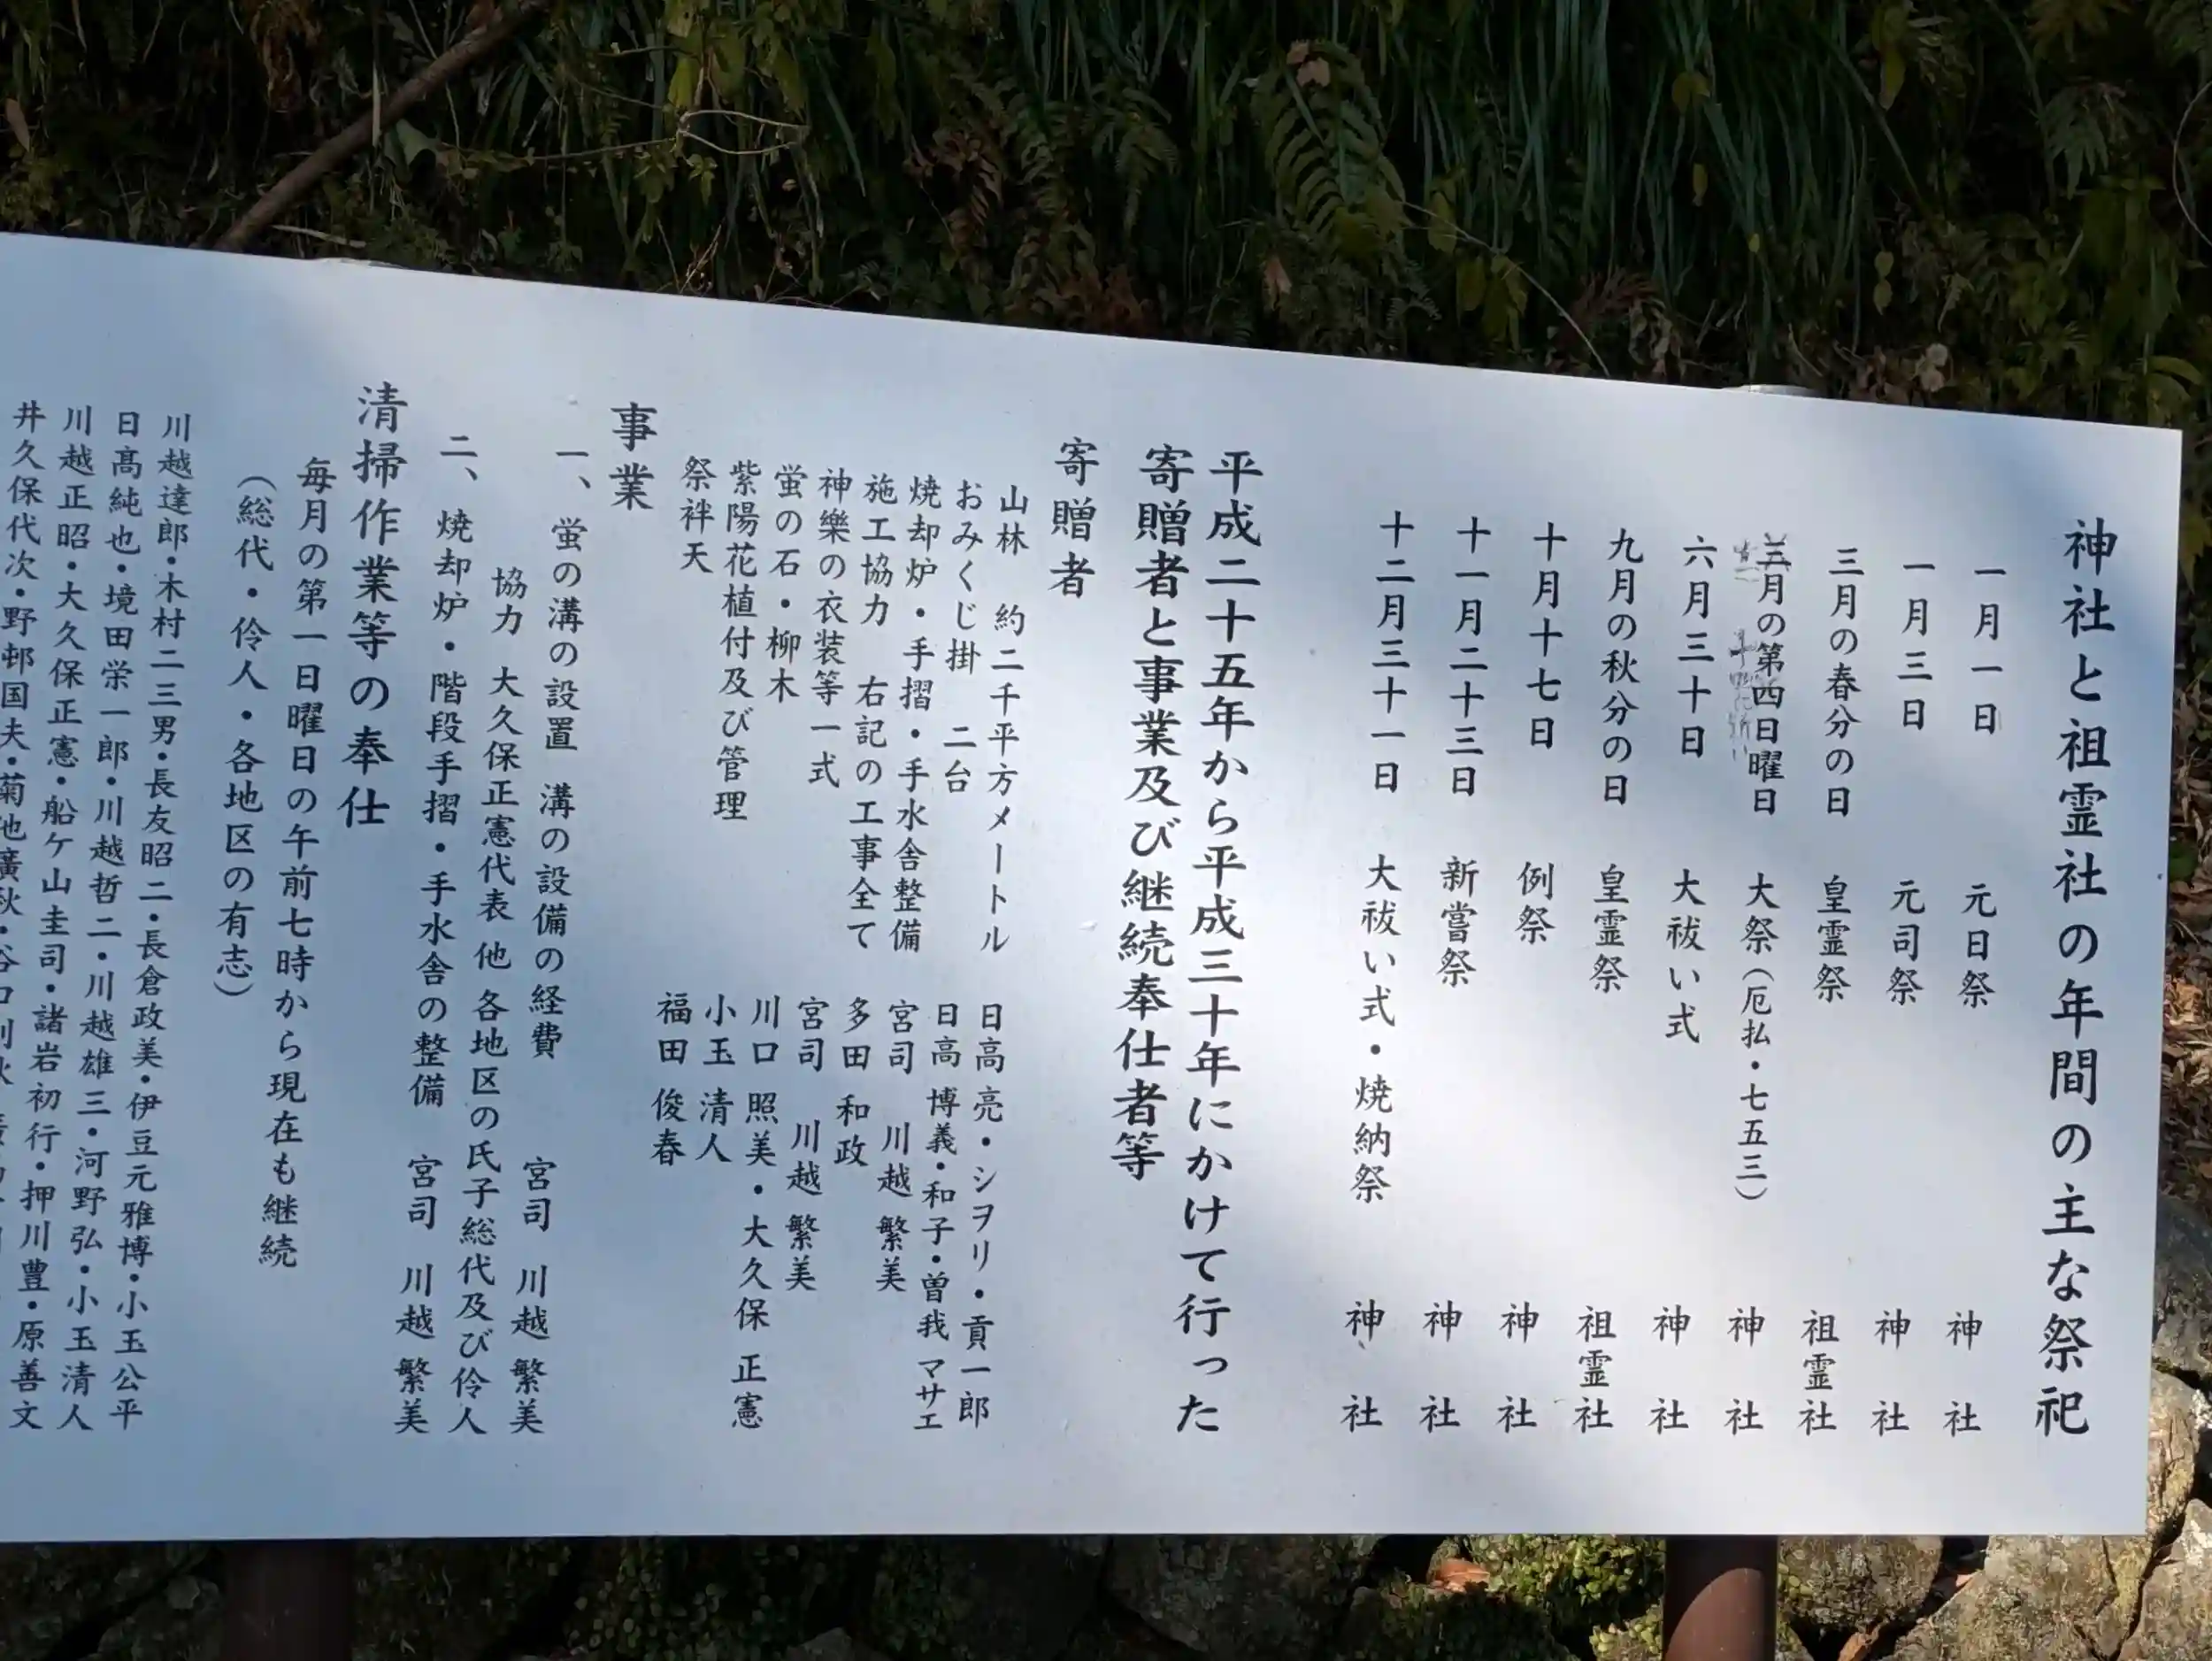 神社と祖霊社の年間の主な祭祀
一月一日 元日祭 神社
一月三日 元司祭 神社
三月の春分の日 皇霊祭 祖霊社
月の第四日曜日 大祭(厄払・七五三) 神社
六月三十日 大祓い式 神社
九月の秋分の日 皇霊祭 祖霊社
十月十七日 例祭 神社
十一月二十三日 新嘗祭 神社
十二月三十一日 大祓い式・焼納祭 神社
平成二十五年から平成三十年にかけて行った
寄贈者と事業及び継続奉仕者等
寄贈者
山林 約二千平方メートル 日高 亮・シヲリ・貢一郎
おみくじ掛 二台 日高 博義・和子・曽我 マサエ
焼却炉・手摺・手水舎整備 宮司 川越 繁美
施工協力 右記の工事全て 多田 和政
神樂の衣装等一式 宮司 川越 繁美
蛍の石・柳木 川口 照美・大久保 正憲
紫陽花植付及び管理 小玉 清人
祭袢天 福田 俊春
事業
一、蛍の溝の設置 溝の設備の経費 宮司 川越 繁美
協力 大久保正憲代表 他 各地区の氏子総代及び伶人
二、焼却炉・階段手摺・手水舎の整備 宮司 川越 繁美
清掃作業等の奉仕
毎月の第一日曜日の午前七時から現在も継続
(総代・伶人・各地区の有志)
川越達郎・木村二三男・長友昭二・長倉政美・伊豆元雅博・小玉公平
日髙純也・境田栄一郎・川越哲二・川越雄三・河野弘・小玉清人
川越正昭・大久保正憲・船ケ山圭司・諸岩初行・押川豊・原善文
井久保代次・野邨国夫・菊池廣秋・